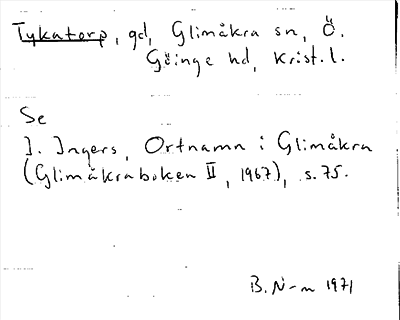 Tykatorp, gd, Glimåkra sn, Ö.
Göinge hd, Krist. l.
Se
I. Ingers, Ortnamn i Glimåkra
(Glimåkraboken II, 1967), s. 75.
B. N-m 1971